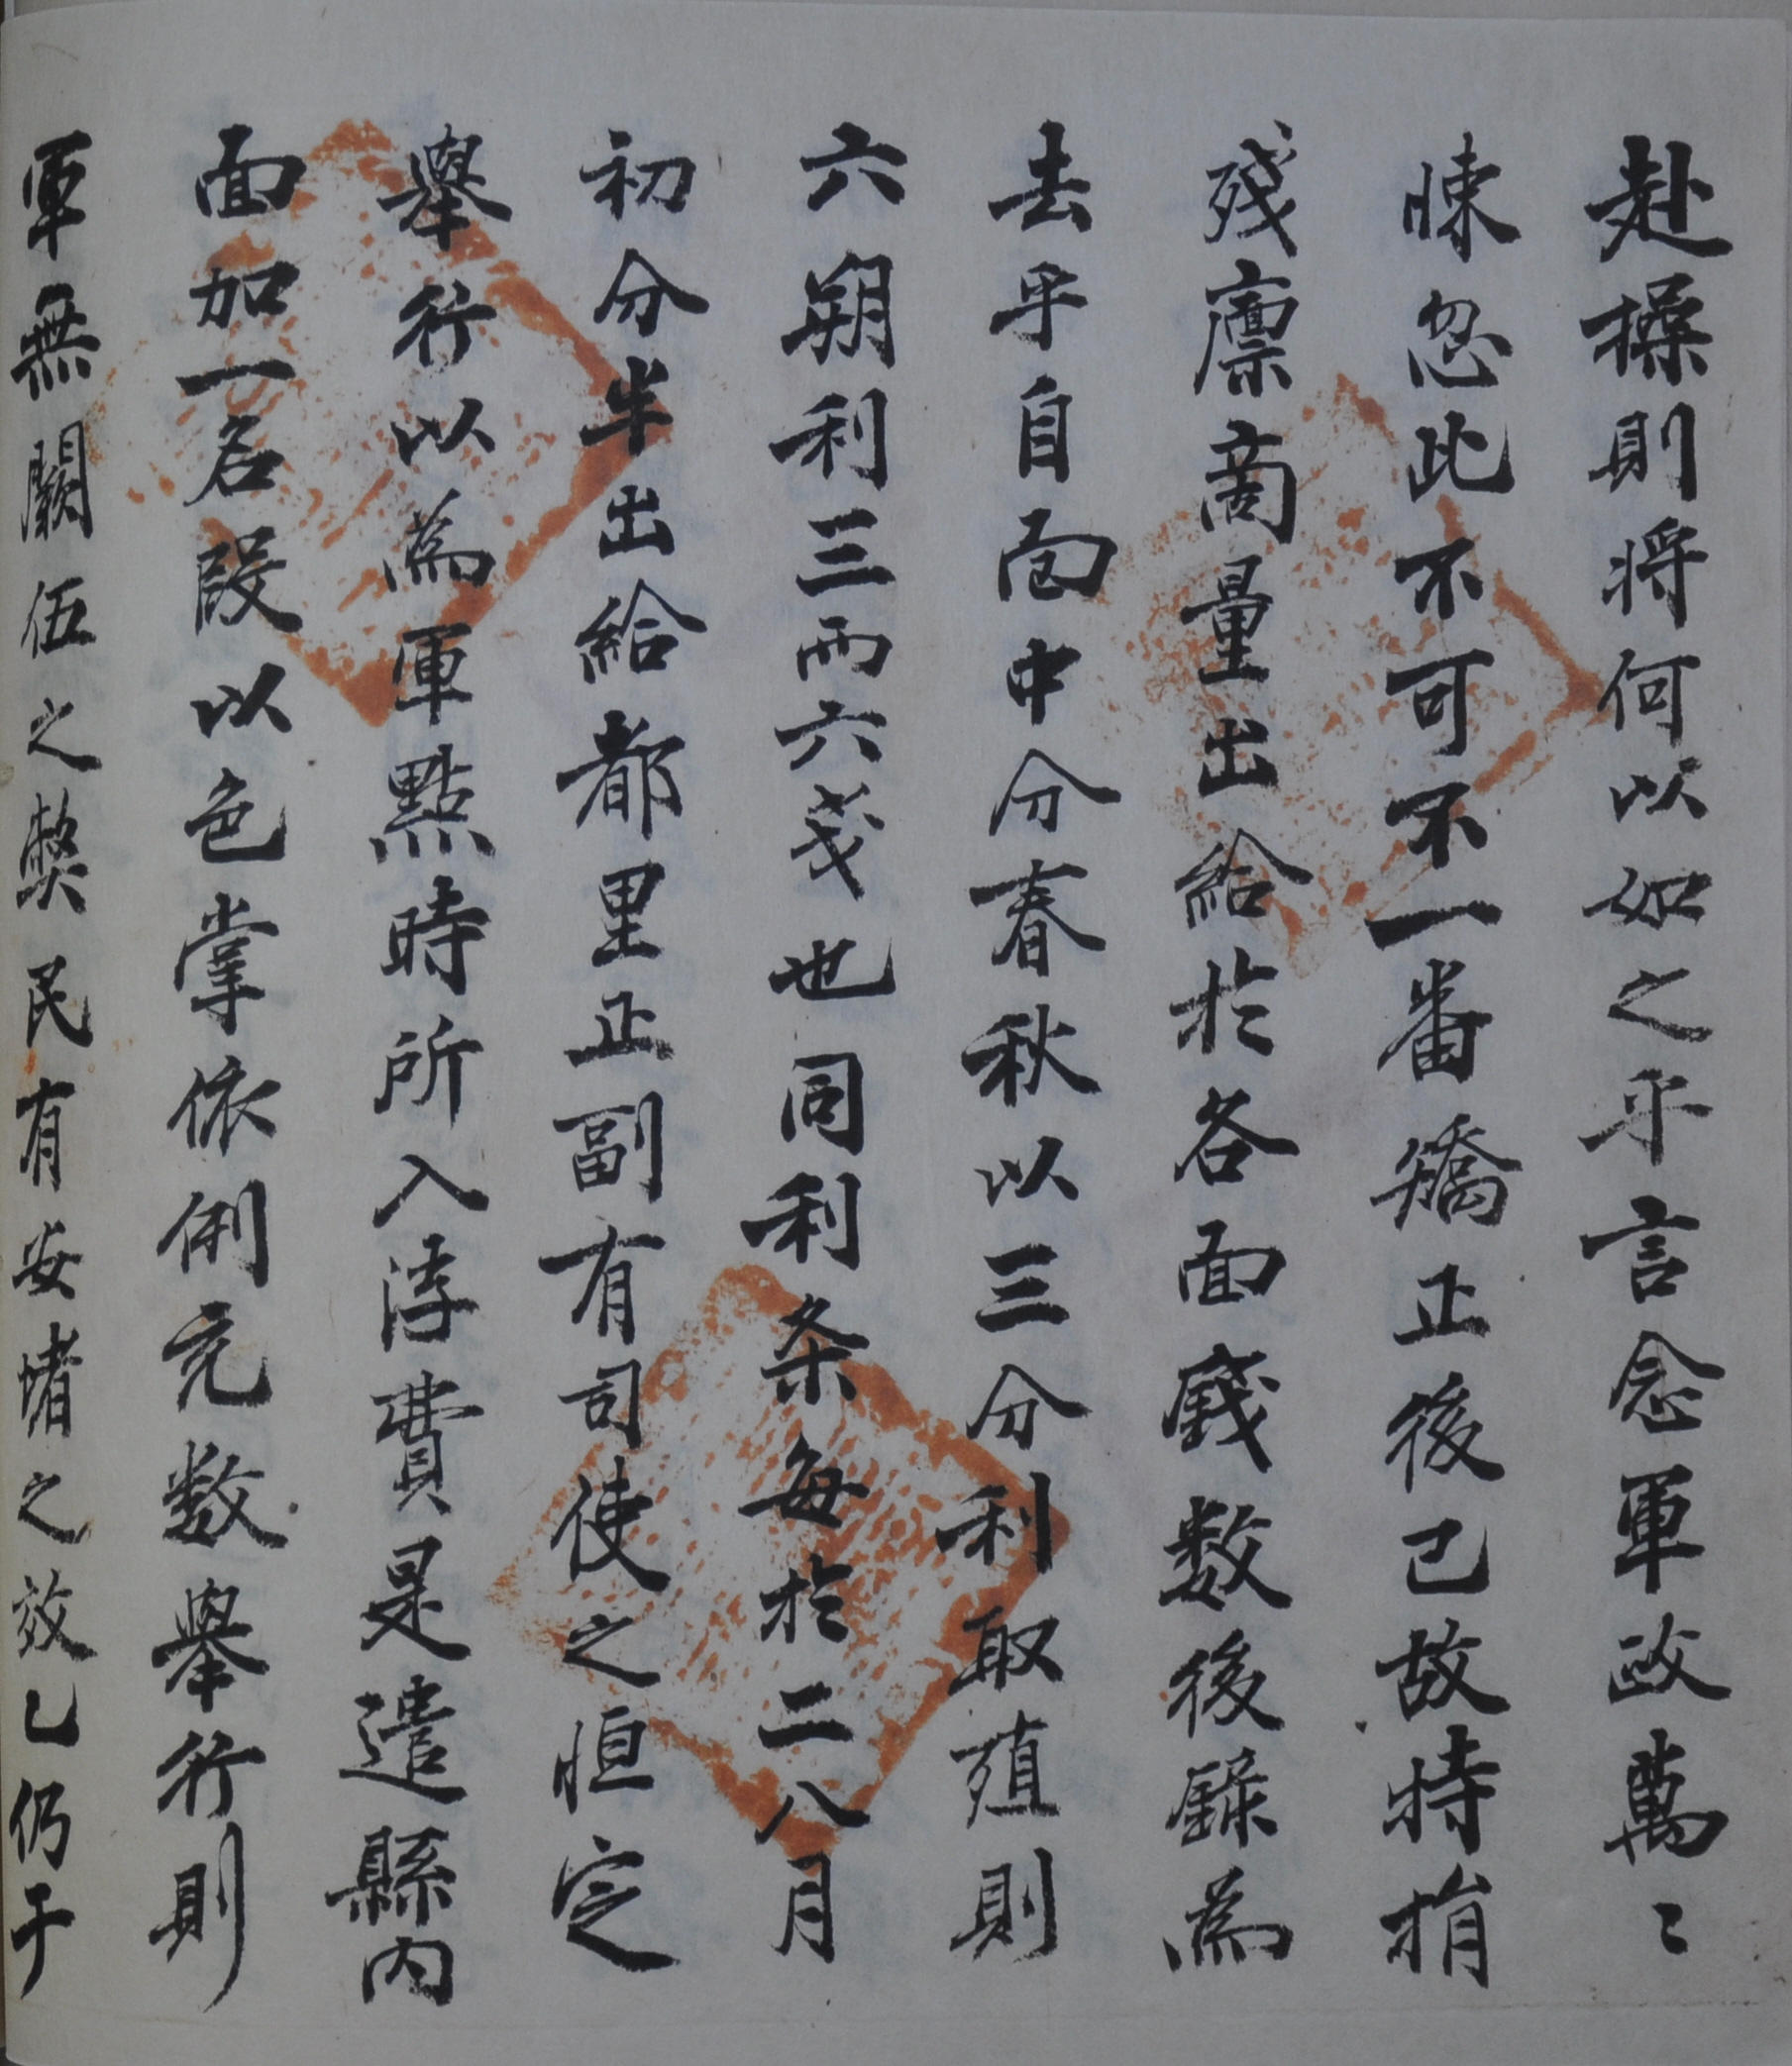 赴操則将何以如之乎言念軍政萬〻
悚忽此不可不一番矯正後已故特捐
殘廩商量出給於各面錢数後錄為
去乎自面中分春秋以三分利取殖則
六朔利三両六戔也同利条每於二八月
初分半出給都里正副有司使之恒定
舉行以為軍點時所入浮費是遣縣内
面加一名段以色掌依例充数舉行則
軍無闕伍之弊民有安堵之效乙仍于